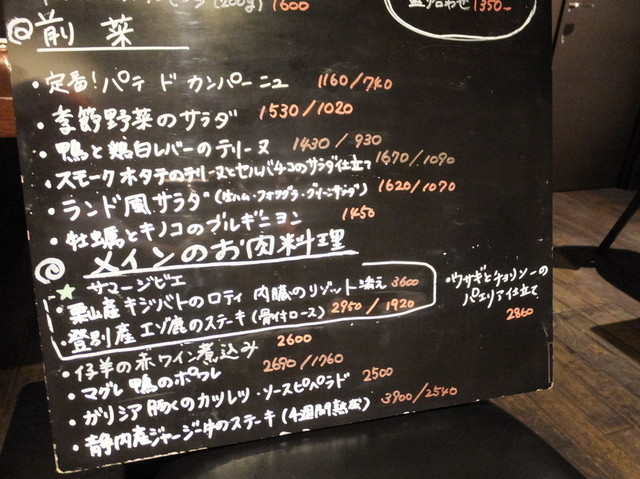 (200g) 1600
盛り合わせ 1350-
前菜
・定番!パテ ド カンパーニュ 1160/740
・季節野菜のサラダ 1530/1020
・鴨と鶏白レバーのテリーヌ 1430/930
・スモークホタテのテリーヌとセルバチコのサラダ仕立て 1670/1090
・ランド風サラダ(生ハム・フォアグラ・グリーンサラダ) 1620/1070
・牡蠣とキノコのブルギニヨン 1450
メインのお肉料理
★サマージビエ
・栗山産キジバトのロティ 内臓のリゾット添え 3600
・登別産エゾ鹿のステーキ(骨付ロース) 2950/1920
・仔羊の赤ワイン煮込み 2600
・マグレ鴨のポワレ 2690/1760
・ガリシア豚くのカツレツ・ソースピペラド 2500
・静内産ジャージー牛のステーキ(4週間熟成) 3900/2540
・ウサギとチョリソーの
パエリア仕立て
2860